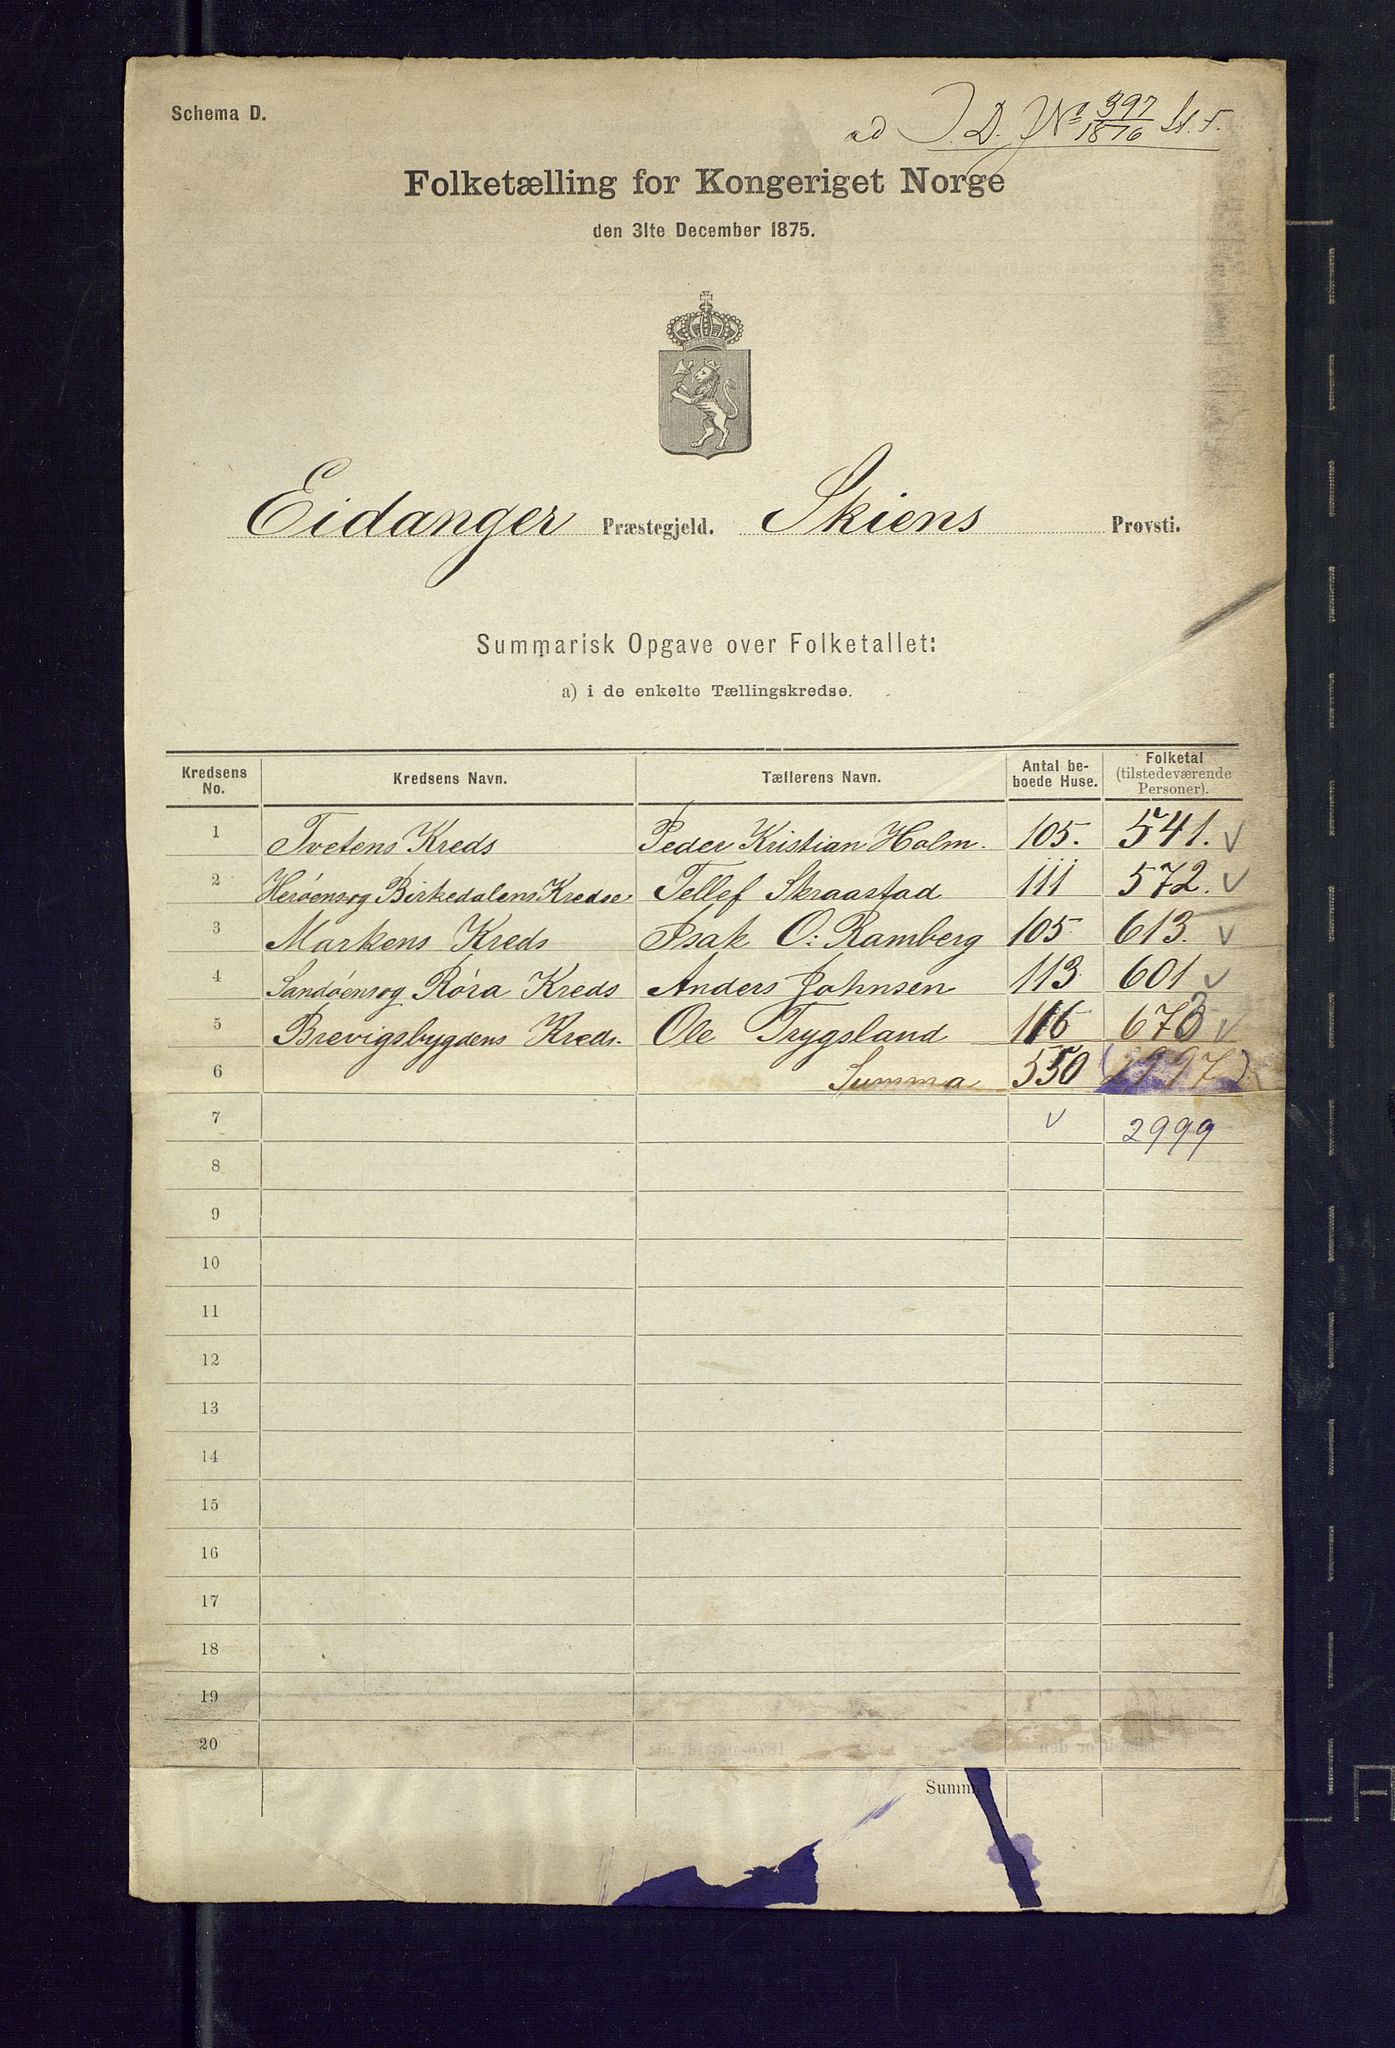 Schema D.
ad J. D. No 397/1876 St. F.
Folketælling for Kongeriget Norge
den 31te December 1875.
Eidanger Præstegjeld. Skiens Provsti.
Summarisk Opgave over Folketallet:
a) i de enkelte Tællingskredse.
Kredsens No. Kredsens Navn. Tællerens Navn. Antal beboede Huse. Folketal (tilstedeværende Personer).
1 Tvetens Kreds Peder Kristian Holm. 105. 541. √
2 Herøens og Birkedalens Kredse Tellef Skraastad 111 572. √
3 Markens Kreds Isak O: Ramberg 105 613. √
4 Sandøens og Røra Kreds Anders Johnsen 113 601 √
5 Brevigsbygdens Kreds. Ole Trygsland 116 673 √
6 Summa 550 (2997)
7 √ 2999
8
9
10
11
12
13
14
15
16
17
18
19
20
Summ